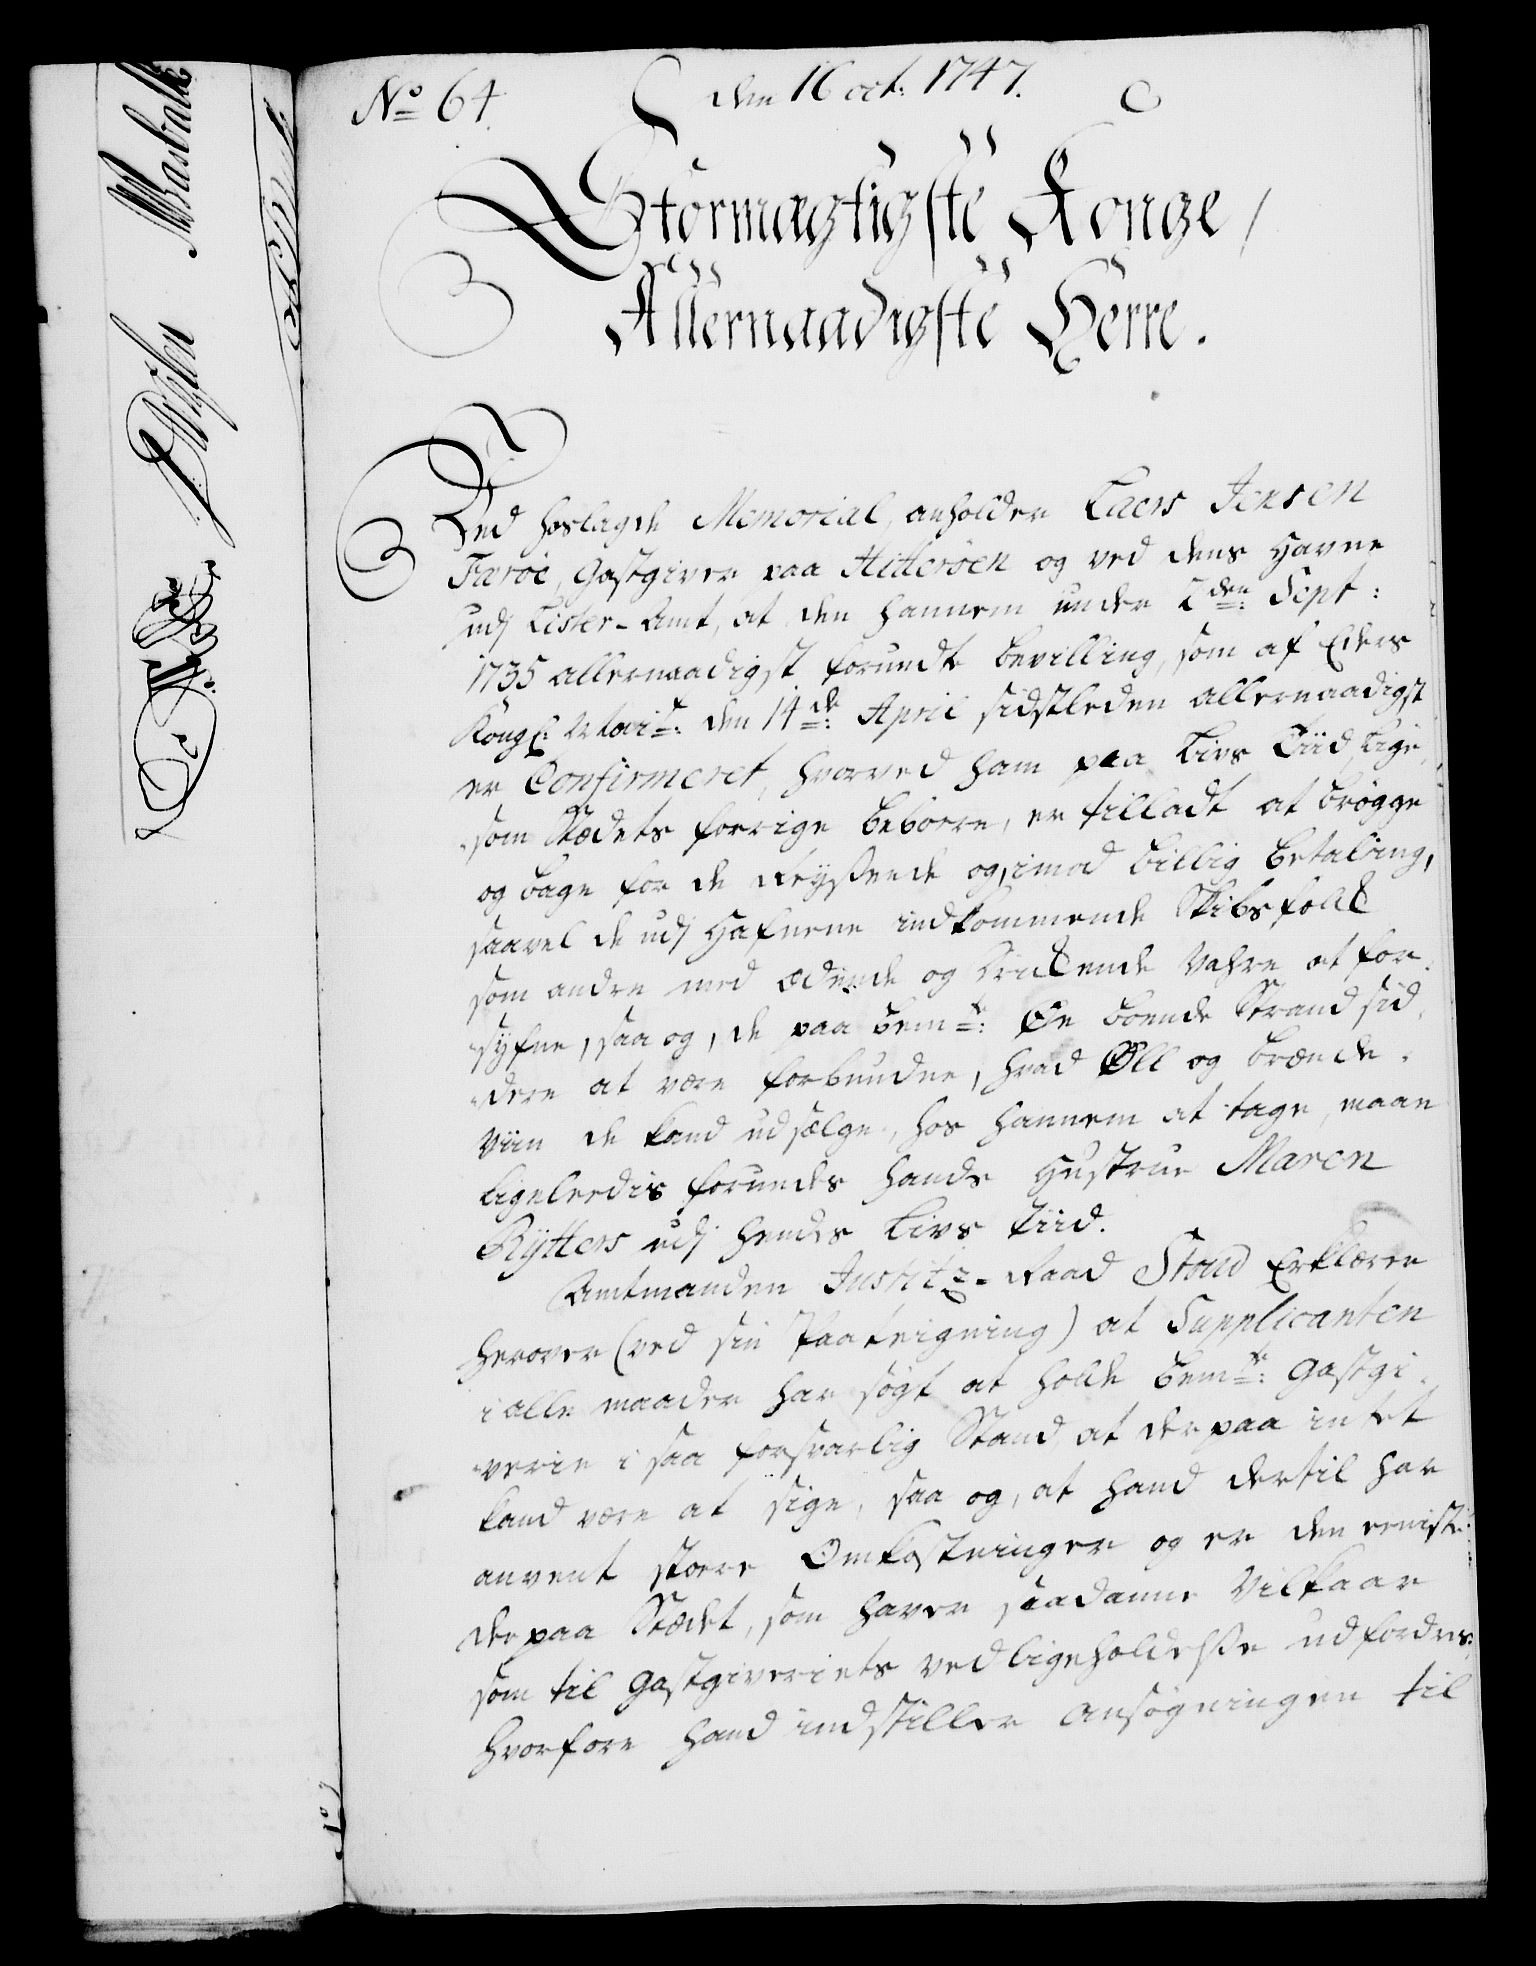 No 64.
den 16 oct: 1747.
Stormægtigste Konge,
Allernaadigste Herre.
Ved hoslagde Memorial, anholder Laers Jensen
Faröe, Gastgiver paa Hitteröen og ved dens Havne
udj Lister-Amt, at den hannem under 2den: Sept:
1735 allernaadigst forundte bevilling, som af Eders
Kongl: Mait: den 14de: April sidstleden allernaadigst
er Confirmeret, hvorved ham paa Livs Tiid, lige
som Stædets forrige beboere, er tilladt at brögge
og bage for de Reyßende og, imod billig betaling,
saavel de udj Hafnene indkommende Skibsfolck
som andre med ædende og drickende Vahre at for-
syfne, saa og, de paa bemte: Öe boende Strandsid-
dere at være forbundne, hvad Öll og brænde-
viin de kand udsælge, hos hannem at tage, maae
ligeleedis forundes hands Hustrue Maren
Rÿtters udj hendes Livs Tiid.
Amtmanden Justitz-Raad Stoud Erklærer
herover (ved sin Paateigning) at Supplicanten
i alle maader har sögt at holde bemte: Gastgi-
verie i saa forsvarlig Stand, at derpaa intet
kand være at sige, saa og, at hand dertil har
anvent store Omkostninger og er den eeniste
der paa Stædet, som haver saadanne Vilkaar
som til Gastgiveriets vedligeholdelße udfordres:
hvorfore hand indstiller ansögningen til